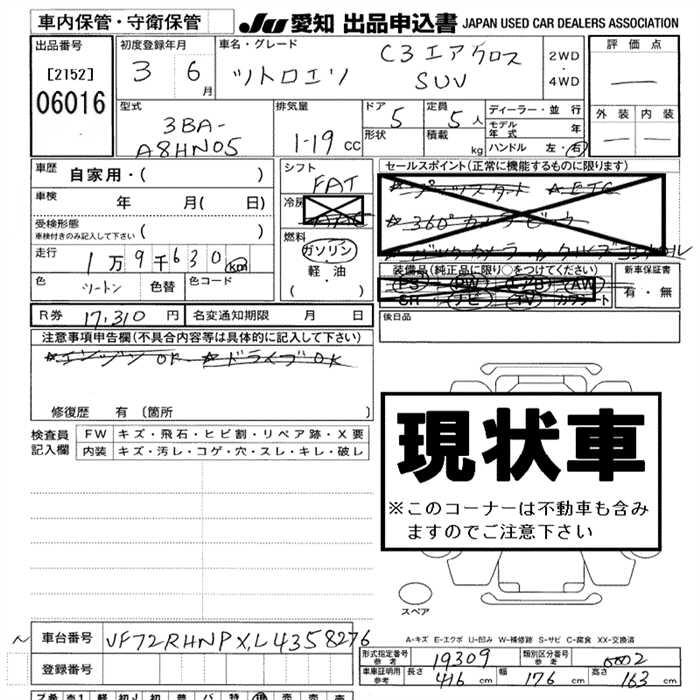 車内保管・守衛保管
JU 愛知 出品申込書 JAPAN USED CAR DEALERS ASSOCIATION
出品番号
[2152]
06016
初度登録年月
3 6月
車名・グレード
シトロエン C3エアクロス
SUV
2WD
・
4WD
評価点
外装 内装
型式
3BA-
A8HN05
排気量
1-19 cc
ドア 5
形状
定員 5 人
積載 kg
ディーラー・並行
モデル年式 年
ハンドル 左・右
車歴 自家用・( )
車検 年 月( 日)
受検形態
車検付きのみ記入して下さい ( )
走行 1万9千630 km
色 ツートン 色替 色コード
シフト
FAT
冷房
燃料
ガソリン
軽・油
( ・ )
セールスポイント(正常に機能するものに限ります)
☆ ETC
☆360°カメラビュー
☆バックカメラ ☆クルーズコントロール
装備品(純正品に限り○をつけてください)
PS PW エアB AW
SR ナビ TV カワシート
新車保証書
有・無
R券 17,310 円 名変通知期限 月 日
後日品
注意事項申告欄(不具合内容等は具体的に記入して下さい)
☆エンジンOK ☆ドライブOK
修復歴 有 〔箇所 〕
検査員記入欄
FW キズ・飛石・ヒビ割・リペア跡・X要
内装 キズ・汚レ・コゲ・穴・スレ・キレ・破レ
現状車
※このコーナーは不動車も含み
ますのでご注意下さい
スペア
A-キズ E-エクボ U-凹み W-補修跡 S-サビ C-腐食 XX-交換済
車台番号 VF72RHNPXL4358276
登録番号
形式指定番号 参考 19309 類別区分番号 参考 0002
車庫証明用 参考 長さ 416 cm 幅 176 cm 高さ 163 cm